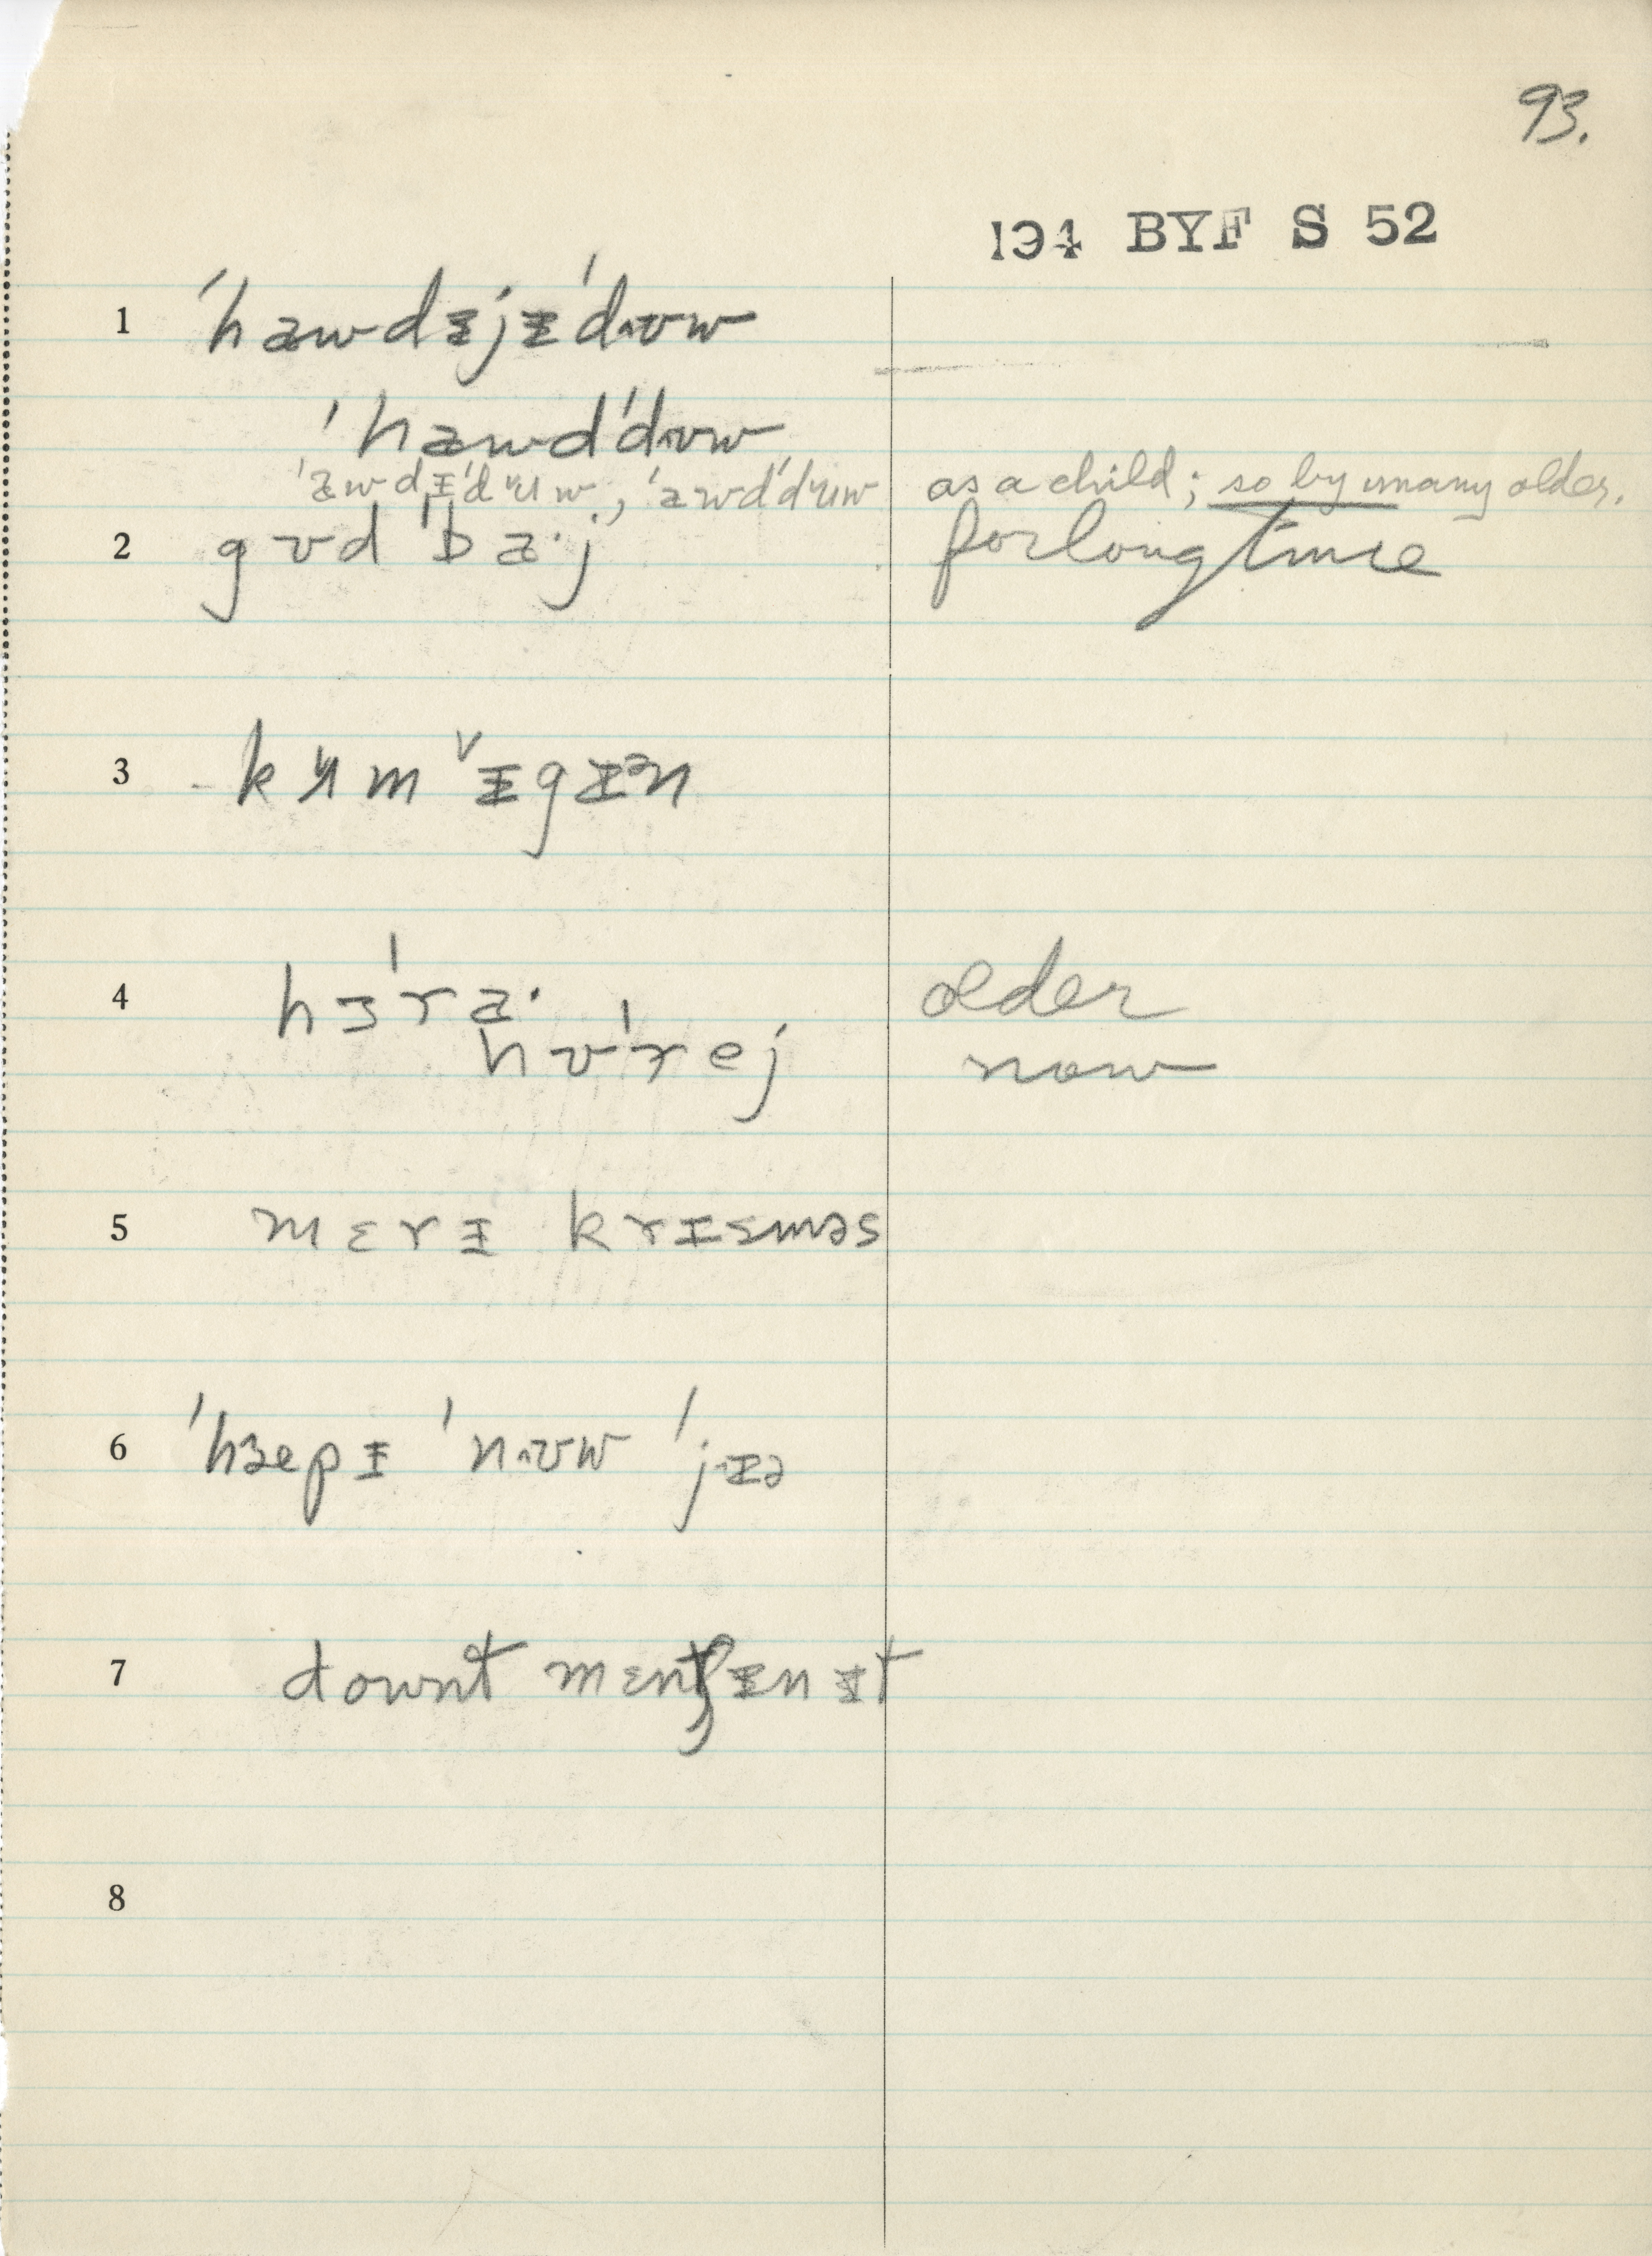 93.
194 BYF S 52
1 ˈhawdᵻjᵻˈdᴧʊw
ˈhawdˈdᴧʊw
ˈawdᵻˈdʉw, ˈawdˈdʉw as a child; so by many older.
2 gʊdˈbaˑj for long time
3 kʉmˇᵻgᵻən
4 hɜˈraˑ older
hʊˈrej now
5 mɛrᵻ krɪsməs
6 ˈhæpᵻ ˈnᴧʊw ˈjɪə
7 downt mɛntʃᵻn ᵻt
8